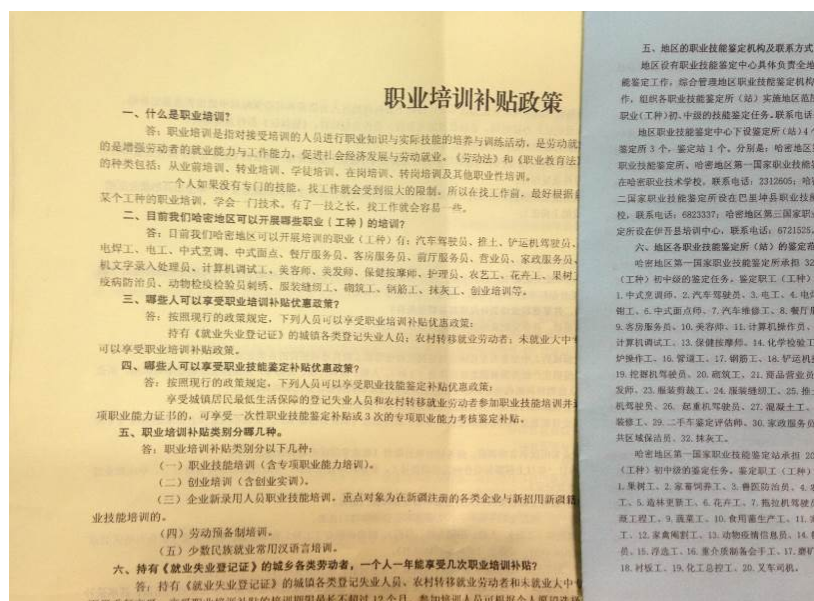 职业培训补贴政策
一、什么是职业培训？
答：职业培训是指对接受培训的人员进行职业知识与实际技能的培养与训练活动，是劳动就
的是增强劳动者的就业能力与工作能力，促进社会经济发展与劳动就业。《劳动法》和《职业教育法
的种类包括：从业前培训、转业培训、学徒培训、在岗培训、转岗培训及其他职业性培训。
一个人如果没有专门的技能，找工作就会受到很大的限制。所以在找工作前，最好根据
某个工种的职业培训，学会一门技术。有了一技之长，找工作就会容易一些。
二、目前我们哈密地区可以开展哪些职业（工种）的培训？
答：目前我们哈密地区可以开展培训的职业（工种）有：汽车驾驶员、推土、铲运机驾驶员、
电焊工、电工、中式烹调、中式面点、餐厅服务员、客房服务员、前厅服务员、营业员、家政服务员、
机文字录入处理员、计算机调试工、美容师、美发师、保健按摩师、护理员、农艺工、花卉工、果树
疫病防治员、动物检疫检验员刺绣、服装缝纫工、砌筑工、钢筋工、抹灰工、创业培训等。
三、哪些人可以享受职业培训补贴优惠政策？
答：按照现行的政策规定，下列人员可以享受职业培训补贴优惠政策：
持有《就业失业登记证》的城镇各类登记失业人员；农村转移就业劳动者；未就业大中
可以享受职业培训补贴政策。
四、哪些人可以享受职业技能鉴定补贴优惠政策？
答：按照现行的政策规定，下列人员可以享受职业技能鉴定补贴优惠政策：
享受城镇居民最低生活保障的登记失业人员和农村转移就业劳动者参加职业技能培训并
项职业能力证书的，可享受一次性职业技能鉴定补贴或3次的专项职业能力考核鉴定补贴。
五、职业培训补贴类别分哪几种。
答：职业培训补贴类别分以下几种：
（一）职业技能培训（含专项职业能力培训）。
（二）创业培训（含创业实训）。
（三）企业新录用人员职业技能培训。重点对象为在新疆注册的各类企业与新招用新疆籍
业技能培训的。
（四）劳动预备制培训。
（五）少数民族就业常用汉语言培训。
六、持有《就业失业登记证》的城乡各类劳动者，一个人一年能享受几次职业培训补贴？
答：持有《就业失业登记证》的城镇各类登记失业人员、农村转移就业劳动者和未就业大中
五、地区的职业技能鉴定机构及联系方式
地区设有职业技能鉴定中心具体负责全地
能鉴定工作，综合管理地区职业技能鉴定机构
作，组织各职业技能鉴定所（站）实施地区范
职业（工种）初、中级的技能鉴定任务。联系电话
地区职业技能鉴定中心下设鉴定所（站）4个
鉴定所3个，鉴定站1个，分别是：哈密地区
职业技能鉴定所、哈密地区第一国家职业技能
在哈密职业技术学校，联系电话：2312605；哈
二国家职业技能鉴定所设在巴里坤县职业技
校，联系电话：6823337；哈密地区第三国家职
定所设在伊吾县培训中心，联系电话：6721525。
六、地区各职业技能鉴定所（站）的鉴定范
哈密地区第一国家职业技能鉴定所承担 32
（工种）初中级的鉴定任务。鉴定职工（工种）
1.中式烹调师、2.汽车驾驶员、3.电工、4.电
钳工、6.中式面点师、7.汽车维修工、8.餐厅
9.客房服务员、10.美容师、11.计算机操作员、
计算机调试工、13.保健按摩师、14.化学检验工
炉操作工、16.管道工、17.钢筋工、18.铲运机
19.挖掘机驾驶员、20.砌筑工、21.商品营业员
发师、23.服装剪裁工、24.服装缝纫工、25.推
机驾驶员、26. 起重机驾驶员、27.混凝土工、
装修工、29.二手车鉴定评估师、30.家政服务员
共区域保洁员、32.抹灰工。
哈密地区第一国家职业技能鉴定站承担 20
（工种）初中级的鉴定任务。鉴定职工（工种）
1.果树工、2.家畜饲养工、3.兽医防治员、4.
工、5.造林更新工、6.花卉工、7.拖拉机驾驶
溉工程工、9.蔬菜工、10.食用菌生产工、11.
工、12.家禽阉割工、13.动物疫情信息员、14.
员、15.浮选工、16.重介质制备会手工、17.磨矿
18.衬板工、19.化工总控工、20.叉车司机。